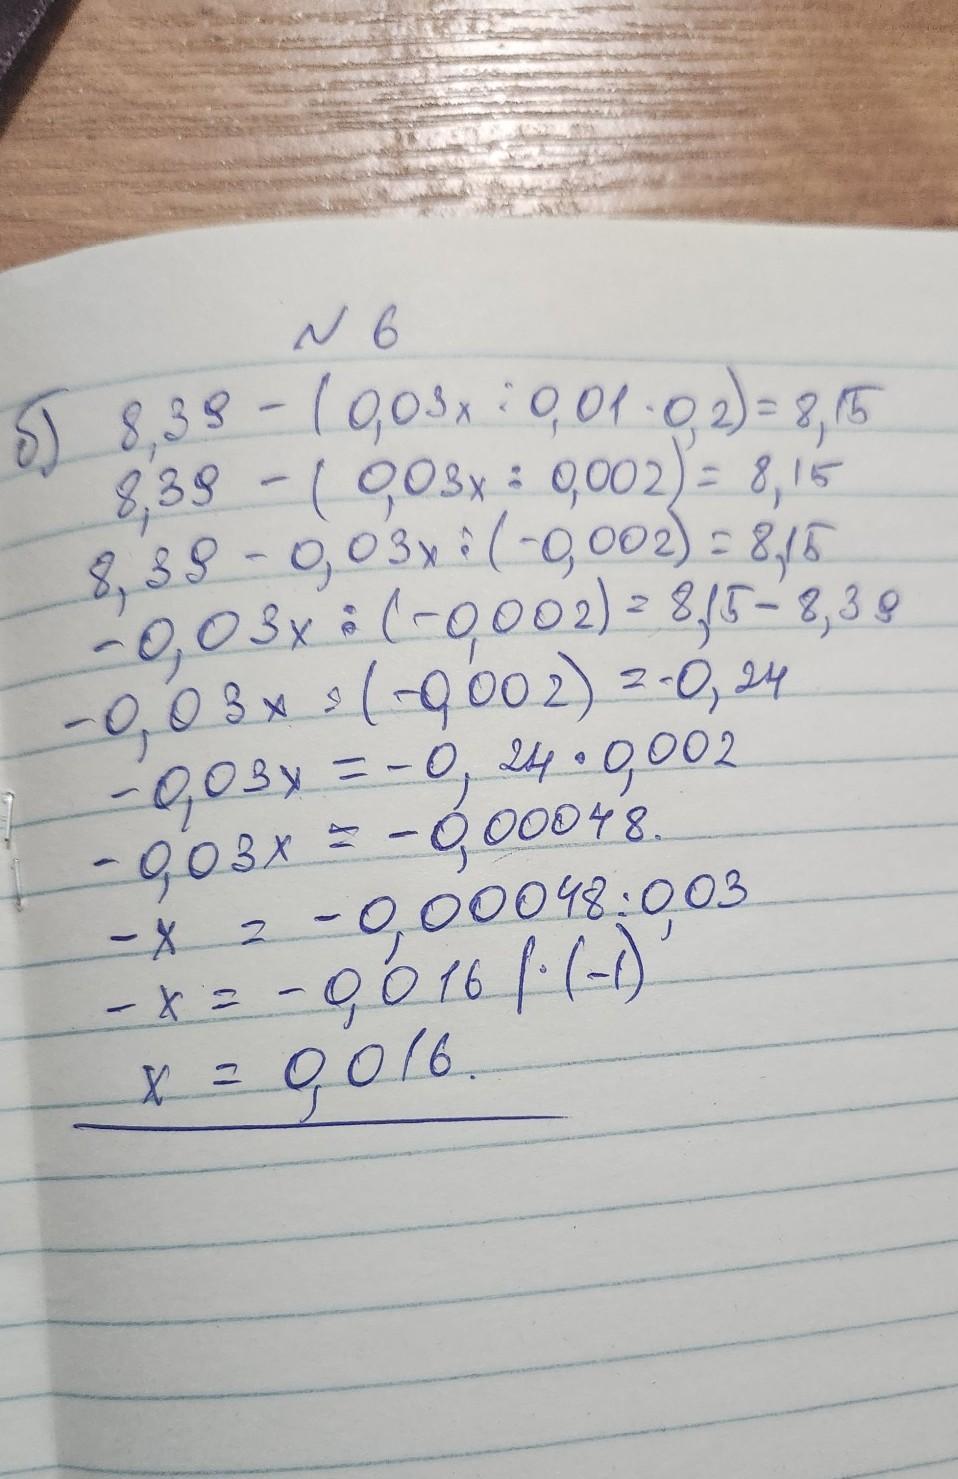 № 6
б) 8,39 - (0,03x : 0,01 · 0,2) = 8,15
8,39 - (0,03x : 0,002) = 8,15
8,39 - 0,03x : (-0,002) = 8,15
-0,03x : (-0,002) = 8,15 - 8,39
-0,03x : (-0,002) = -0,24
-0,03x = -0,24 · 0,002
-0,03x = -0,00048.
-x = -0,00048 : 0,03
-x = -0,016 | · (-1)
x = 0,016.